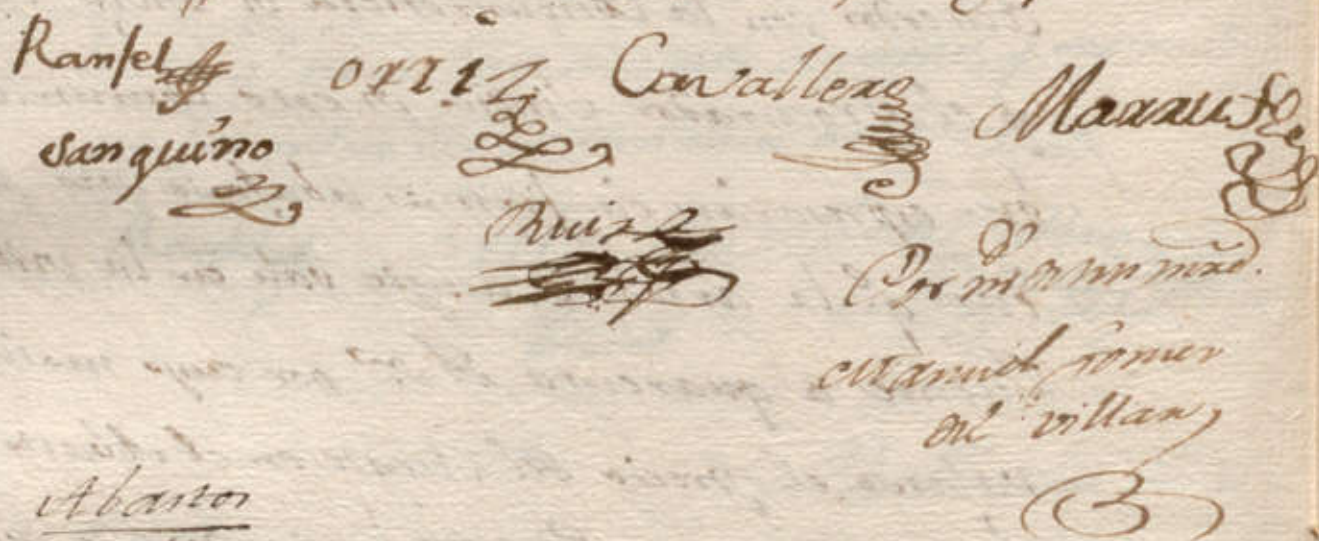 Ransel Ortiz Cavallero Marrufo
Sanguino
Ruiz
Por mando
Manuel Gomez
del Villar
Abastos